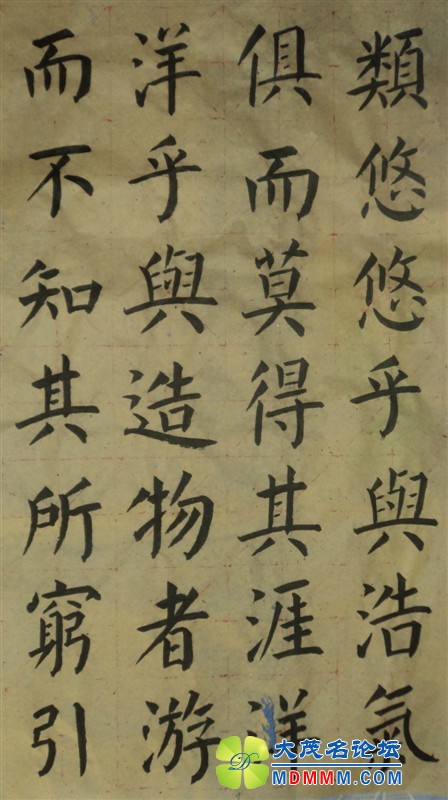 類悠悠乎與浩氣
俱而莫得其涯洋
洋乎與造物者游
而不知其所窮引
大茂名论坛
MDMMM.COM